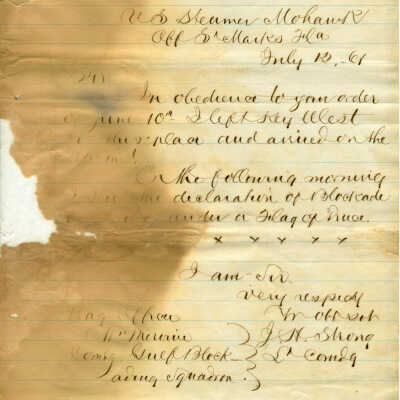 U S Steamer Mohawk
Off St Marks Fla
July 12, -61
In obedience to your order
of June 10th I left Key West
place and arived on the
On the following morning
the declaration of Blockade
under a Flag of Truce.
x x x x x
I am Sir.
very respcy
Yr obt svt
Flag Officer
Wm Mervine } J. H. Strong
Comg Gulf Block } Lt comdg
ading Squadron. }